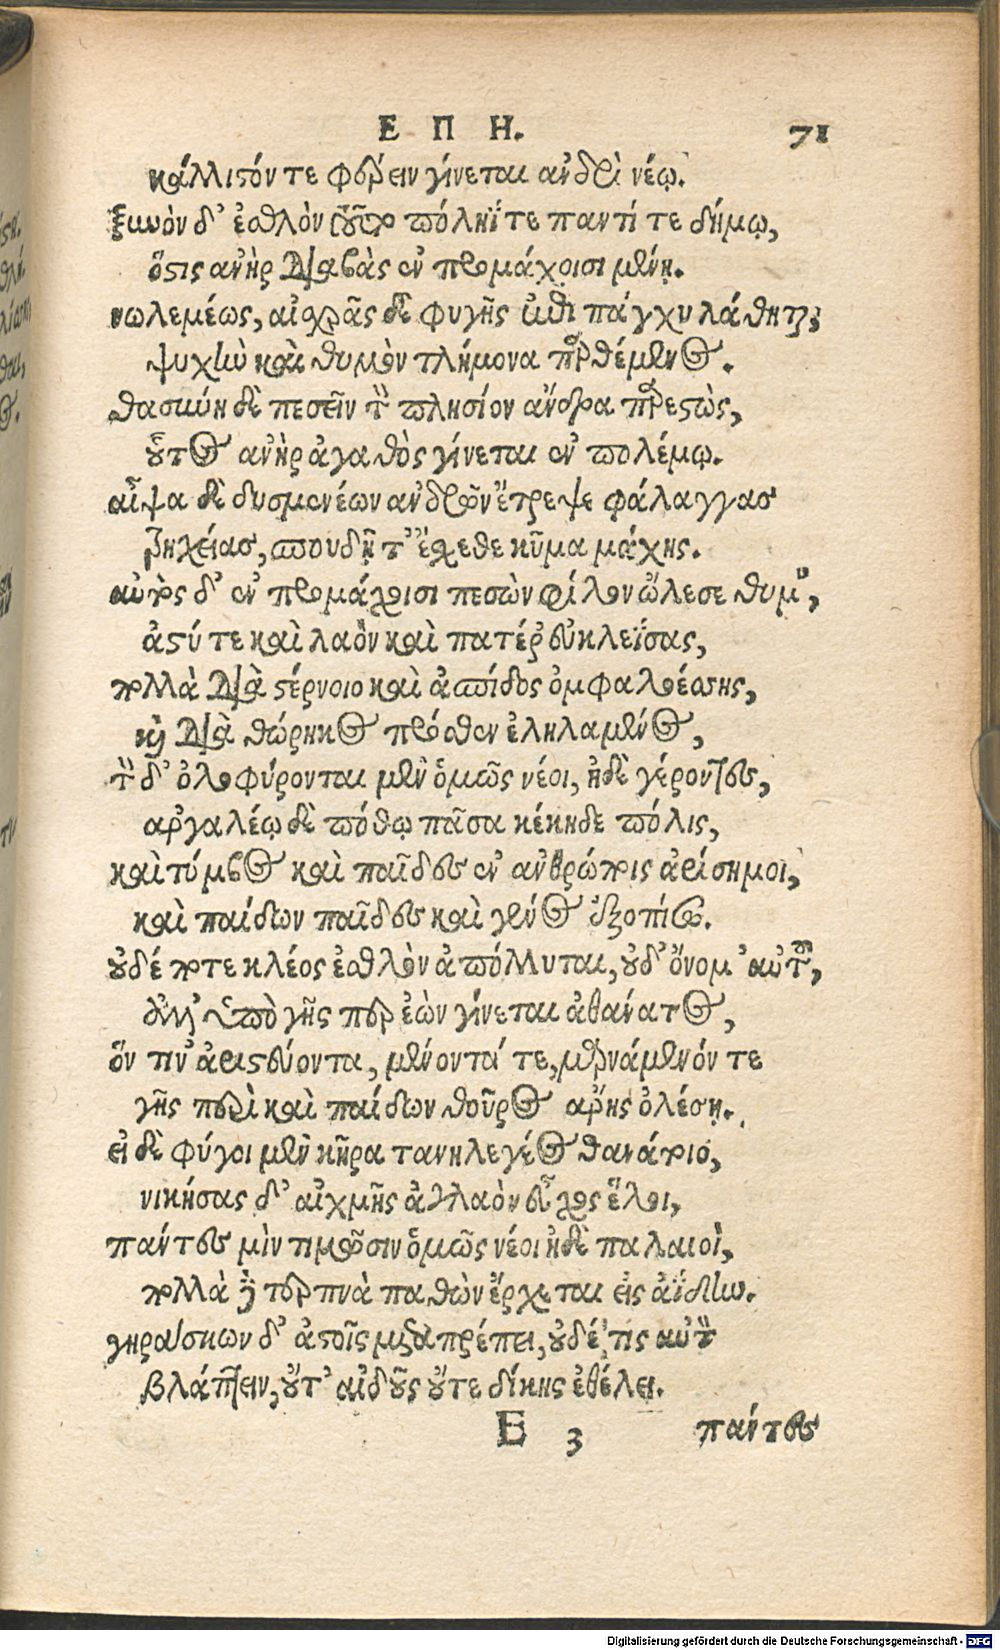 ΕΠΗ. 71
κάλλιστόν τε φέρειν γίνεται ἀνδρὶ νέῳ.
ξυνὸν δ' ἐσθλὸν τοῦτο πόληΐ τε παντί τε δήμῳ,
ὅστις ἀνὴρ διαβὰς ἐν προμάχοισι μένῃ.
νωλεμέως, αἰσχρᾶς δὲ φυγῆς ἐπὶ πάγχυ λάθηται,
ψυχὴν καὶ θυμὸν τλήμονα παρθέμενος.
θαρσύνῃ δὲ πεσεῖν τὸν πλησίον ἄνδρα παρεστὼς,
οὗτος ἀνὴρ ἀγαθὸς γίνεται ἐν πολέμῳ.
αἶψα δὲ δυσμενέων ἀνδρῶν ἔτρεψε φάλαγγας
τρηχείας, σπουδῇ τ' ἔσχεθε κῦμα μάχης.
αὐτὸς δ' ἐν προμάχοισι πεσὼν φίλον ὤλεσε θυμὸν,
ἄστύ τε καὶ λαὸν καὶ πατέρ' εὐκλεΐσας,
πολλὰ διὰ στέρνοιο καὶ ἀσπίδος ὀμφαλοέσσης,
καὶ διὰ θώρηκος πρόσθεν ἐληλαμένος,
τὸν δ' ὀλοφύρονται μὲν ὁμῶς νέοι, ἠδὲ γέροντες,
ἀργαλέῳ δὲ πόθῳ πᾶσα κέκηδε πόλις,
καὶ τύμβος καὶ παῖδες ἐν ἀνθρώποις ἀρίσημοι,
καὶ παίδων παῖδες καὶ γένος ἐξοπίσω.
οὐδέ ποτε κλέος ἐσθλὸν ἀπόλλυται, οὐδ' ὄνομ' αὐτοῦ,
ἀλλ' ὑπὸ γῆς περ ἐὼν γίνεται ἀθάνατος,
ὅν τιν' ἀριστεύοντα, μένοντά τε, μαρνάμενόν τε
γῆς περὶ καὶ παίδων θοῦρος ἄρης ὀλέσῃ.
εἰ δὲ φύγοι μὲν κῆρα τανηλεγέος θανάτοιο,
νικήσας δ' αἰχμῆς ἀγλαὸν εὖχος ἕλοι,
πάντες μὶν τιμῶσιν ὁμῶς νέοι ἠδὲ παλαιοὶ,
πολλὰ δὲ τερπνὰ παθὼν ἔρχεται εἰς ἀΐδην.
γηράσκων δ' ἀστοῖς μεταπρέπει, οὐδέ τις αὐτὸν
βλάπτειν, οὔτ' αἰδοῦς οὔτε δίκης ἐθέλει.
E 3 πάντες
Digitalisierung gefördert durch die Deutsche Forschungsgemeinschaft - DFG